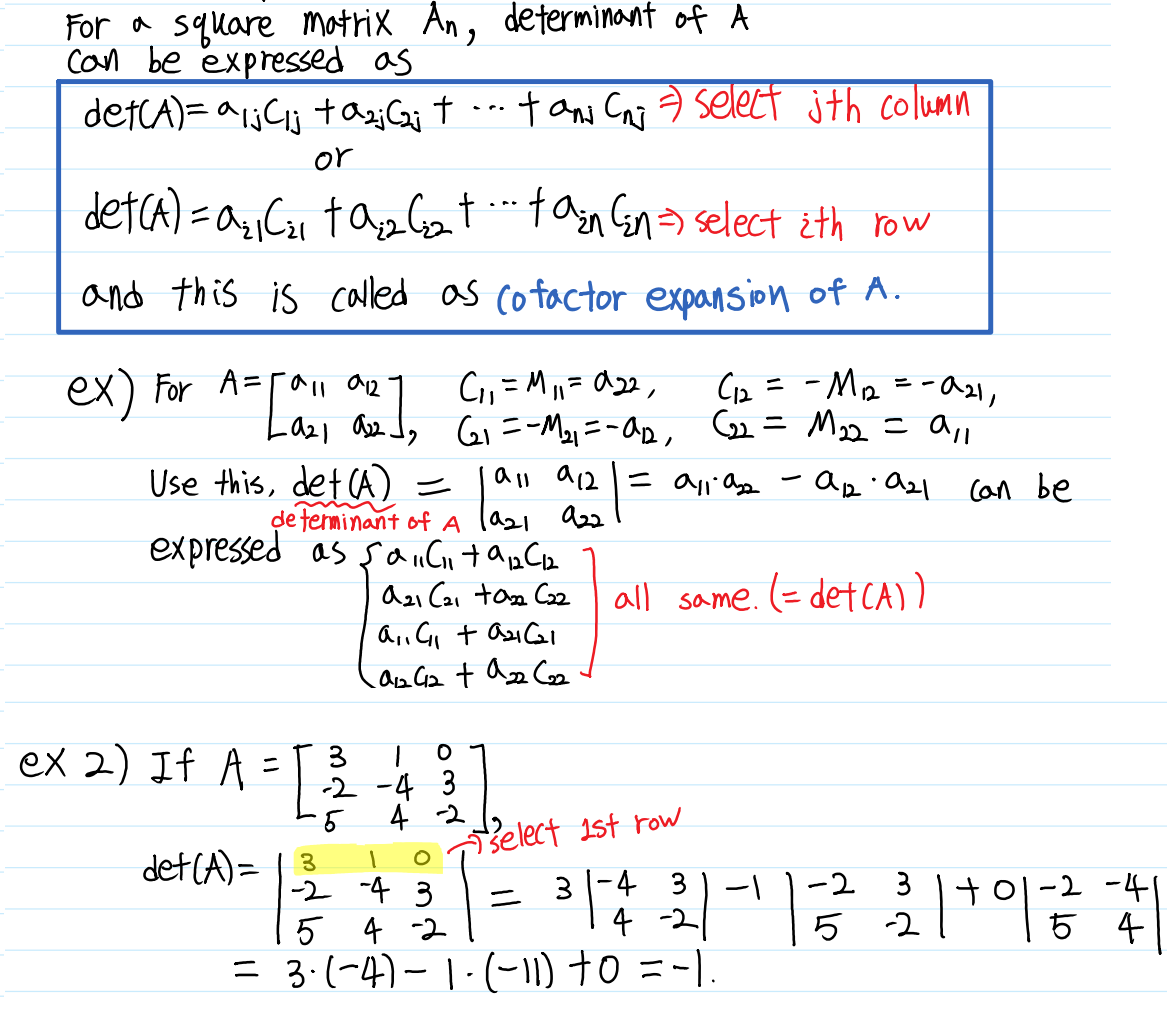 For a square matrix An, determinant of A
can be expressed as
det(A)= a1jC1j + a2jC2j + ... + anj Cnj ⇒ select jth column
or
det(A) = ai1Ci1 + ai2Ci2 + ... + ain Cin ⇒ select ith row
and this is called as cofactor expansion of A.
ex) For A= [a11 a12
a21 a22], C11 = M11 = a22, C12 = -M12 = -a21,
C21 = -M21 = -a12, C22 = M22 = a11
Use this, det(A) = |a11 a12
a21 a22| = a11·a22 - a12·a21 can be
determinant of A
expressed as { a11C11 + a12C12
a21C21 + a22C22
a11C11 + a21C21
a12C12 + a22C22
all same. (= det(A))
ex 2) If A = [3 1 0
-2 -4 3
5 4 -2],
→ select 1st row
det(A)= |3 1 0
-2 -4 3
5 4 -2| = 3 |-4 3
4 -2| -1 |-2 3
5 -2| + 0 |-2 -4
5 4|
= 3·(-4) - 1·(-11) + 0 = -1.